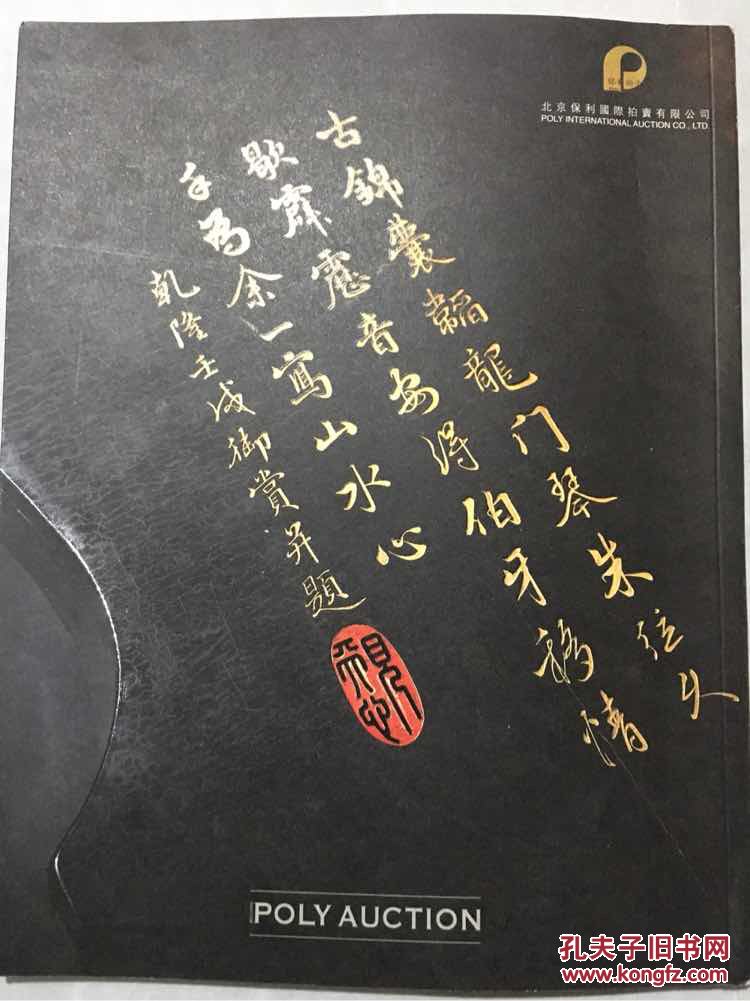 北京保利國際拍賣有限公司
POLY INTERNATIONAL AUCTION CO., LTD.
古錦囊韜龍门琴朱弦久
歇霹靂音安得伯牙移情
手為余一寫山水心
乾隆壬戌御賞并題
POLY AUCTION
孔夫子旧书网
www.kongfz.com